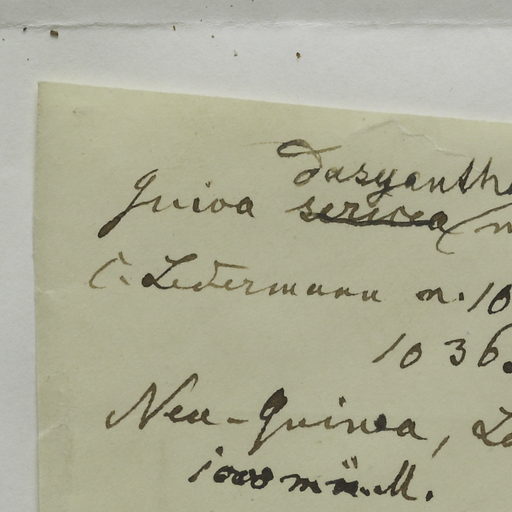 dasyantha
Guioa sericea (n
C. Ledermann n. 10
1036
Neu-Guinea, Lo
1000 m ü. M.